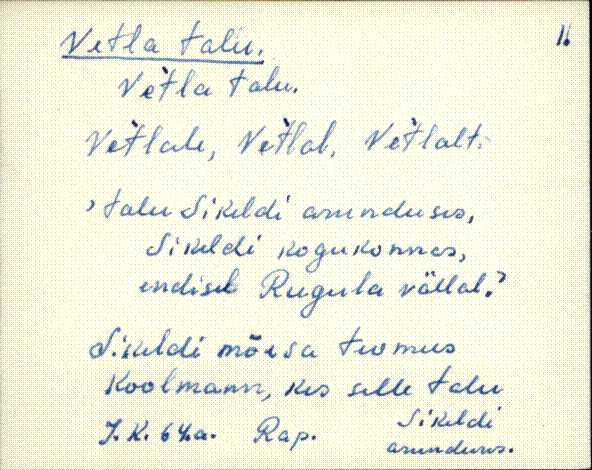 Vetla talu. 11.
Vètla talu.
Vètlale, Vètlal, Vètlalt.
, talu Sikeldi asunduses,
Sikeldi kogukonnas,
endisel Rugula vallal.?
Sikeldi mõisa teomees
Koolmann, kes selle talu
J.K. 64.a. Rap. Sikeldi
asunduses.